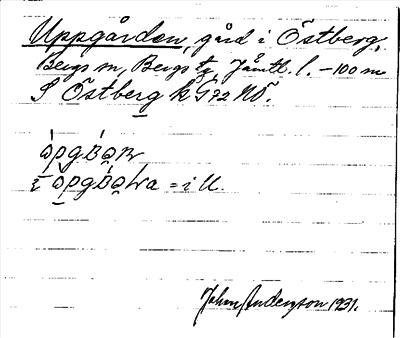 Uppgården, gård i Östberg,
Bergs sn, Bergs tg, Jämtl. l. – 100 m
S Östberg k 972 NO.
i = i U.
John Anderzson 1931.